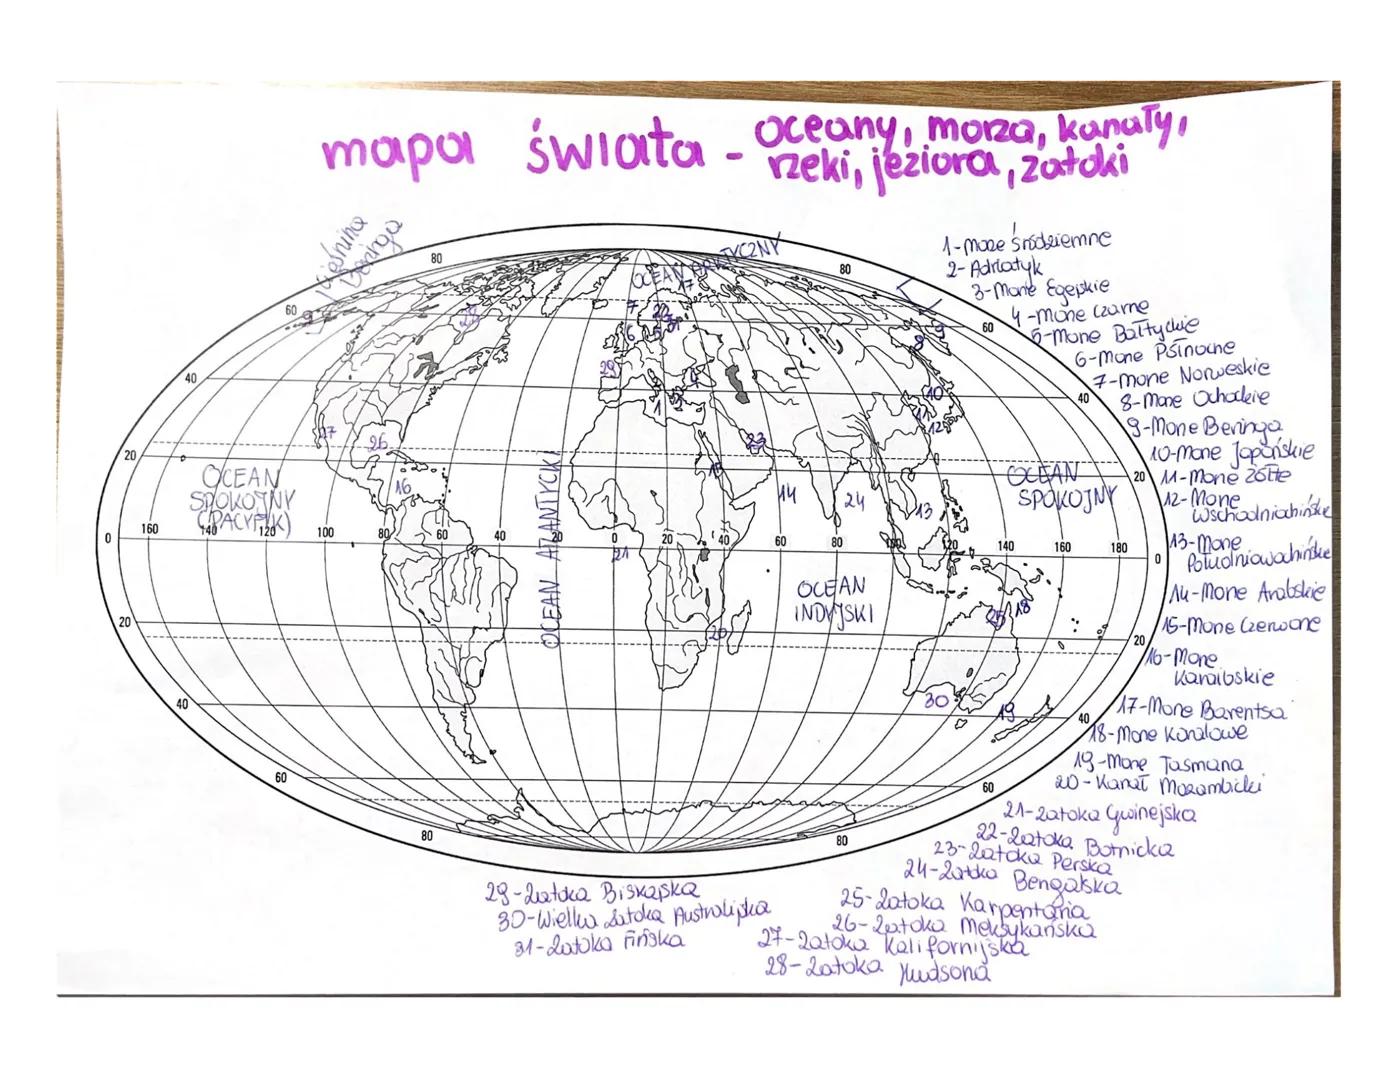 mapa świata - oceany, morza, kanały,
rzeki, jeziora, zatoki
cieśnina
Beringa
OCEAN ARKTYCZNY
OCEAN
SPOKOJNY
(PACYFIK)
OCEAN ATLANTYCKI
OCEAN
INDYJSKI
OCEAN
SPOKOJNY
80
80
60
60
40
40
20
20
0
160
140
120
100
80
60
40
20
0
20
40
60
80
100
120
140
160
180
0
20
20
40
40
60
60
80
80
9
28
27
26
16
29
7
6
17
22
31
5
4
1
2
3
15
23
14
24
13
8
9
10
11
12
21
20
25
18
30
19
1-Morze Śródziemne
2-Adriatyk
3-Morze Egejskie
4-Morze Czarne
5-Morze Bałtyckie
6-Morze Północne
7-Morze Norweskie
8-Morze Ochockie
9-Morze Beringa
10-Morze Japońskie
11-Morze Żółte
12-Morze
Wschodniochińskie
13-Morze
Południowochińskie
14-Morze Arabskie
15-Morze Czerwone
16-Morze
Karaibskie
17-Morze Barentsa
18-Morze Koralowe
19-Morze Tasmana
20-Kanał Mozambicki
21-Zatoka Gwinejska
22-Zatoka Botnicka
23-Zatoka Perska
24-Zatoka Bengalska
25-Zatoka Karpentaria
26-Zatoka Meksykańska
27-Zatoka Kalifornijska
28-Zatoka Hudsona
29-Zatoka Biskajska
30-Wielka Zatoka Australijska
31-Zatoka Fińska